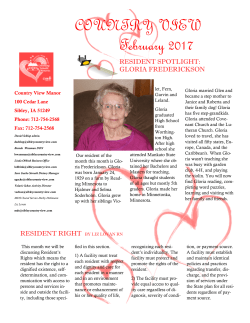 COUNTRY VIEW
February 2017
RESIDENT SPOTLIGHT:
GLORIA FREDERICKSON
Country View Manor
100 Cedar Lane
Sibley, IA 51249
Phone: 712-756-2568
Fax: 712-754-2568
Our resident of the
month this month is Glo-
ria Frederickson. Gloria
was born January 24,
1939 on a farm by Read-
ing Minnesota to
Hjalmer and Selma
Soderholm. Gloria grew
up with her siblings Vic-
tor, Fern,
Garry and
Leland.
Gloria
graduated
High School
from
Worthing-
ton High.
After high
school she
attended Mankato State
University where she ob-
tained her Bachelors and
Masters for teaching.
Gloria thought students
of all ages but mostly 5th
graders. Gloria made her
home in Minneapolis,
Minnesota.
Gloria married Glen and
became a step mother to
Janice and Roberta and
their family dog! Gloria
has five step-grandkids.
Gloria attended Cove-
nant Church and the Lu-
theran Church. Gloria
loved to travel, she has
visited all fifty states, Eu-
rope, Canada, and the
Caribbean. When Glo-
ria wasn't teaching she
was busy with garden
club, 4-H, and playing
the violin. You will now
find Gloria reading, com-
pleting word puzzles,
learning and visiting with
her family and friends.
RESIDENT RIGHT
This month we will be
discussing Resident's
Rights which means the
resident has the right to a
dignified existence, self-
determination, and com-
munication with access to
persons and services in-
side and outside the facili-
ty, including those speci-
fied in this section
1) A facility must treat
each resident with respect
and dignity and care for
each resident in a manner
and in an environment
that promotes mainte-
nance or enhancement of
his or her quality of life,
recognizing each resi-
dent's individuality. The
facility must protect and
promote the rights of the
resident.
2) The facility must pro-
vide equal access to quali-
ty care regardless of di-
agnosis, severity of condi-
tion, or payment source.
A facility must establish
and maintain identical
policies and practices
regarding transfer, dis-
charge, and the provi-
sion of services under
the State plan for all resi-
dents regardless of pay-
ment source.